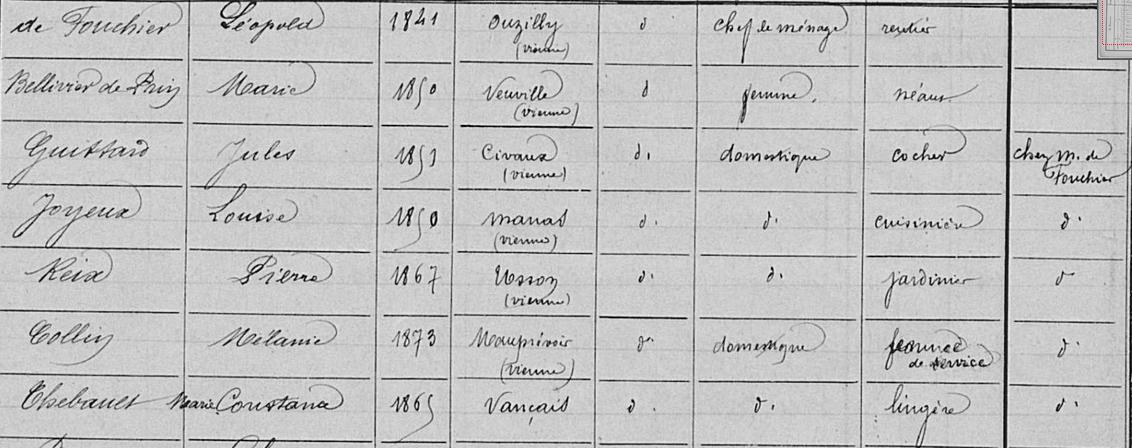 de Fouchier Léopold 1841 Ouzilly d chef de ménage rentier
(vienne)
Bellivier de Prin Marie 1850 Neuville d femme. néant
(vienne)
Guittard Jules 1853 Civaux d. domestique cocher chez m. de
(vienne) Fouchier
Joyeux Louise 1850 d. d. cuisinière d.
(vienne)
Reix Pierre 1867 Usson d. d. jardinier d
(vienne)
Collin Mélanie 1873 Mauprévoir d. domestique femme d.
(vienne) de service
Thebault Marie Constance 1865 Vançais d. d. lingère d.